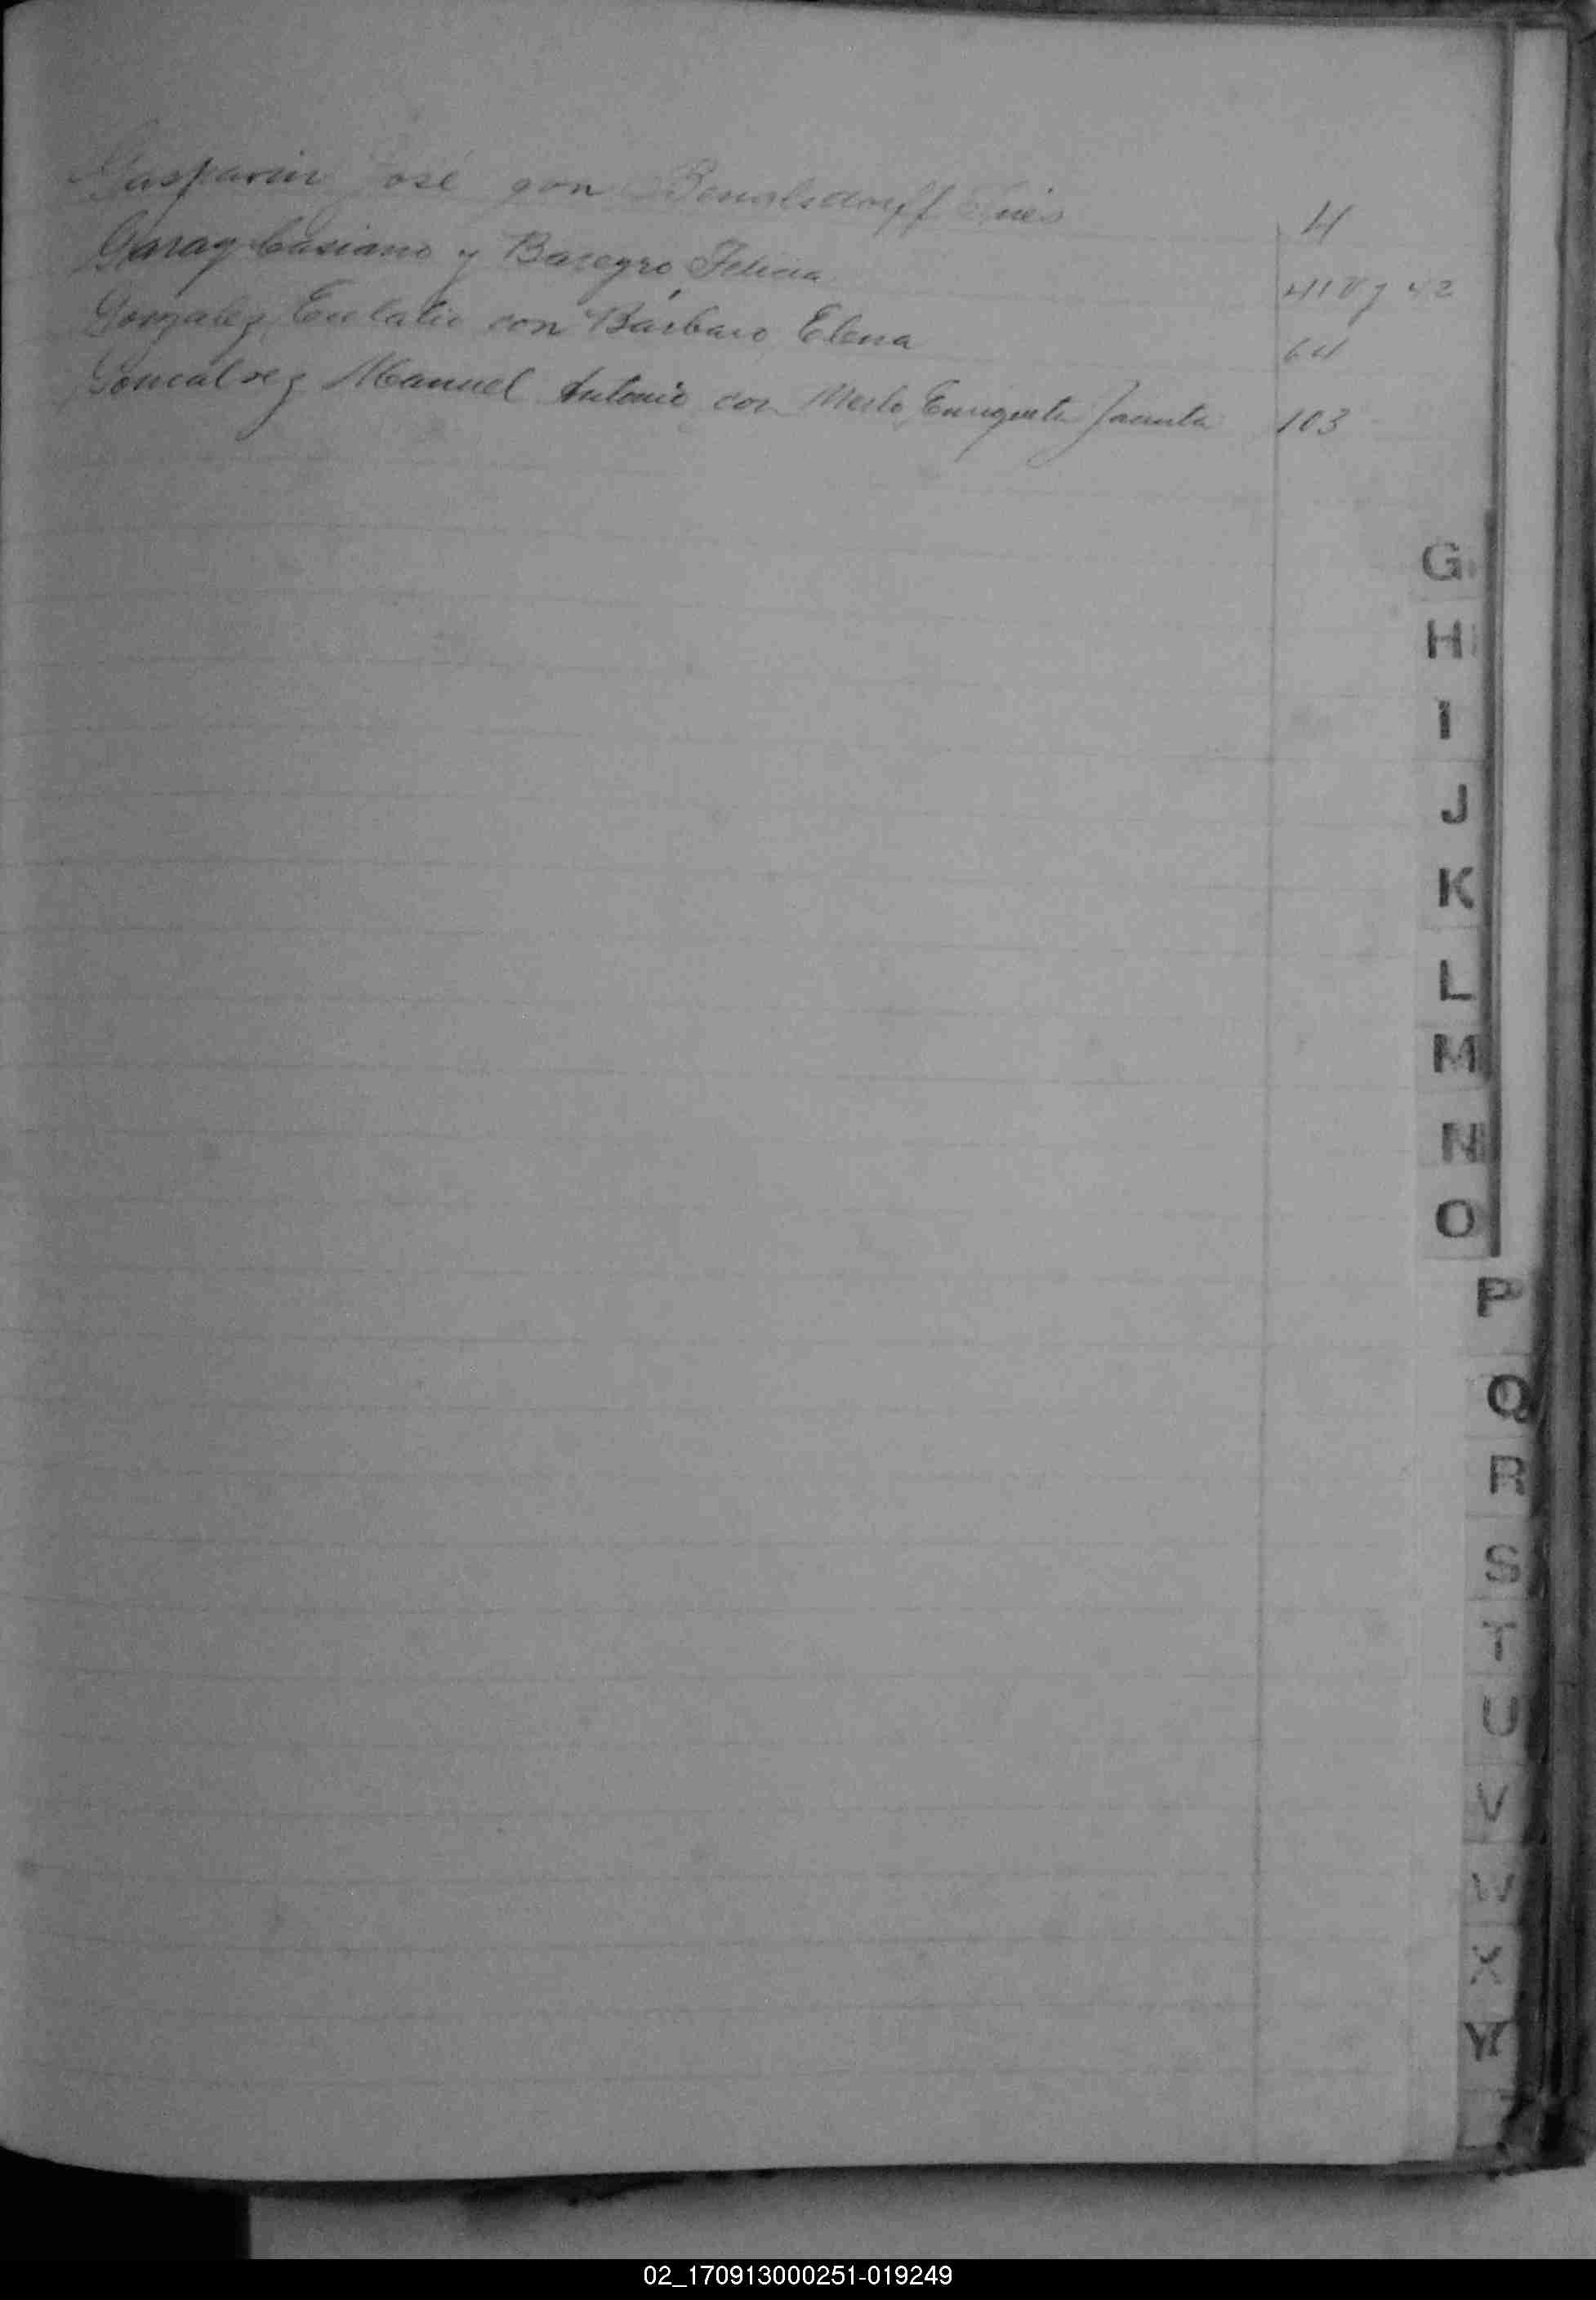 Gasparin José con Benalsdorff Inés 4
Garay Casiano y Basegro Felicia 41 V y 42
Gonzalez Eulalio con Bárbaro Elena 64
Goncalvez Manuel Antonio con Merlo Enriqueta Jacinta 103
G
H
I
J
K
L
M
N
O
P
Q
R
S
T
U
V
W
X
Y
Z
02_170913000251-019249